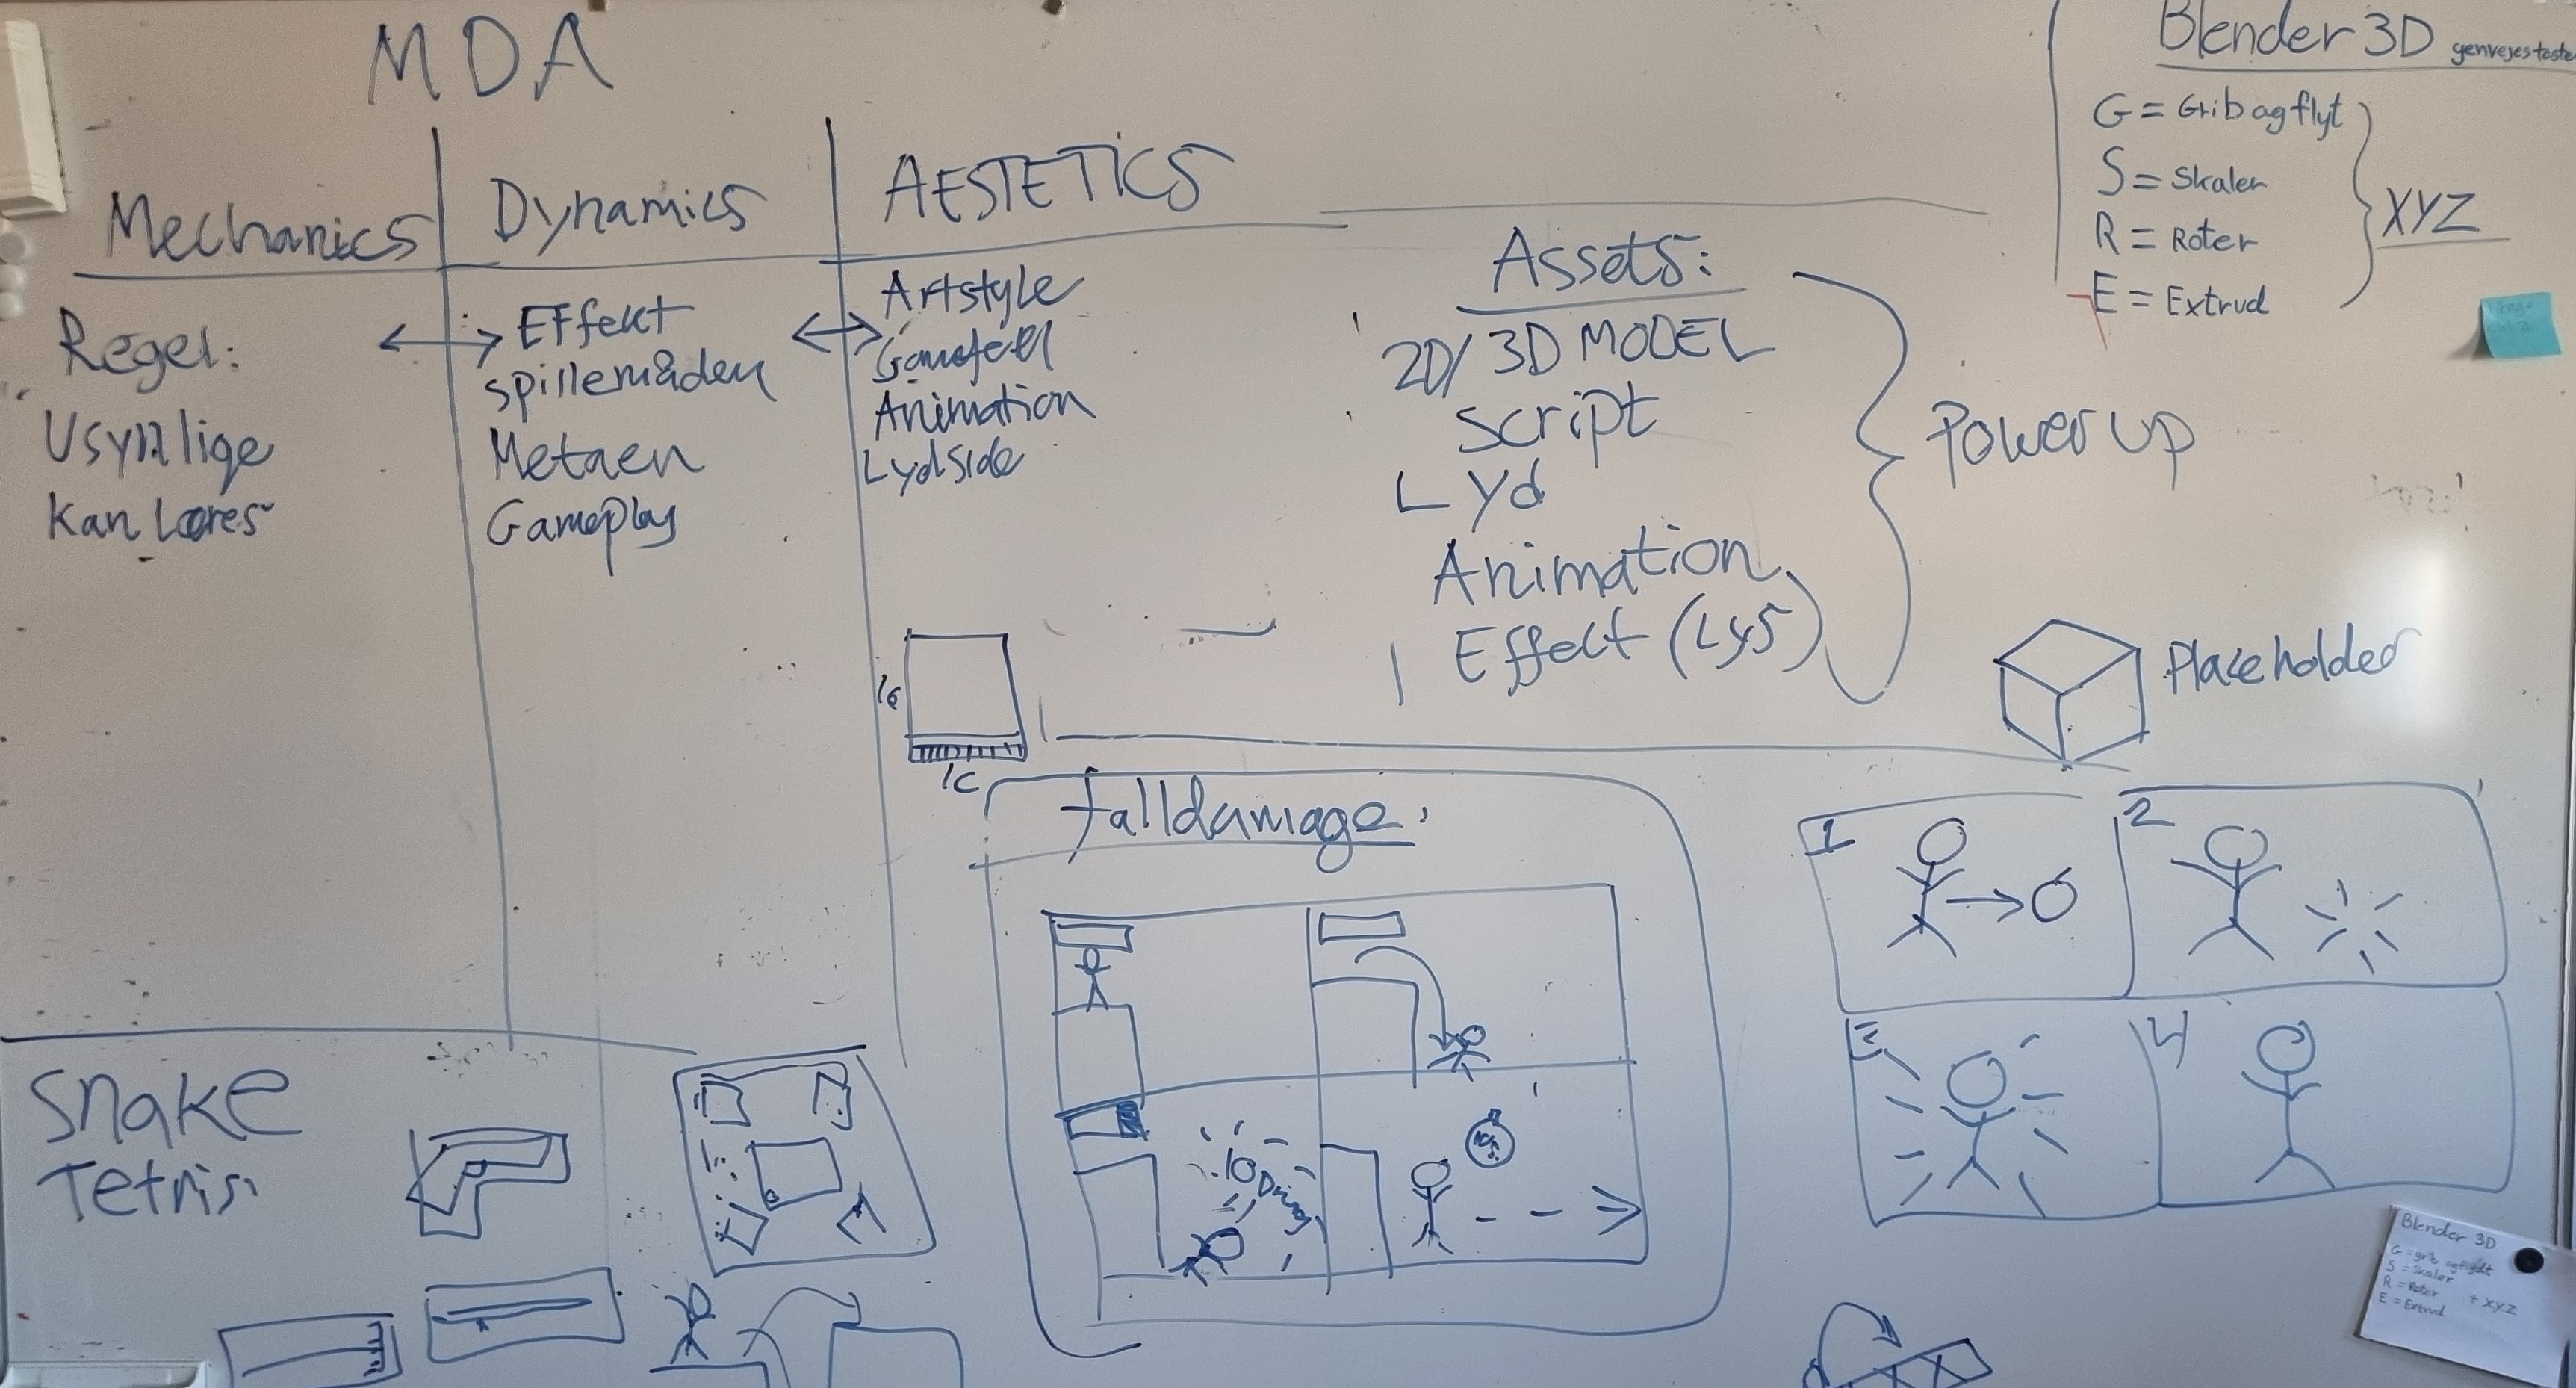 MDA
Mechanics
Regel:
Usynlige
Kan Læres
Dynamics
Effekt
spillemåden
Metaen
Gameplay
AESTETICS
Artstyle
Gamefeel
Animation
Lydside
Assets:
2D/3D MODEL
Script
Lyd
Animation
Effekt (Lys)
Power up
Blender 3D genvejestaster
G = Grib og flyt
S = Skaler
R = Roter
E = Extrud
XYZ
Placeholder
falldamage:
1
2
3
4
Snake
Tetris
Blender 3D
G = grib og flydt
S = Skaler
R = Roter
E = Extrud
+ XYZ